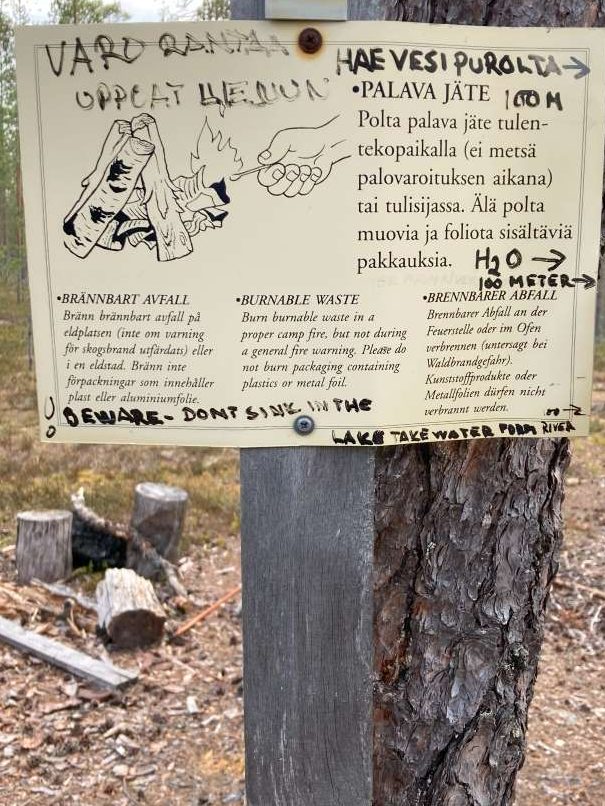 VARO RANTAA
HAE VESI PUROLTA →
UPPOAT
100 M
•PALAVA JÄTE
Polta palava jäte tulen-
tekopaikalla (ei metsä
palovaroituksen aikana)
tai tulisijassa. Älä polta
muovia ja foliota sisältäviä
pakkauksia.
H2O →
100 METER →
•BRÄNNBART AVFALL
Bränn brännbart avfall på
eldplatsen (inte om varning
för skogsbrand utfärdats) eller
i en eldstad. Bränn inte
förpackningar som innehåller
plast eller aluminiumfolie.
•BURNABLE WASTE
Burn burnable waste in a
proper camp fire, but not during
a general fire warning. Please do
not burn packaging containing
plastics or metal foil.
•BRENNBARER ABFALL
Brennbarer Abfall an der
Feuerstelle oder im Ofen
verbrennen (untersagt bei
Waldbrandgefahr).
Kunststoffprodukte oder
Metallfolien dürfen nicht
verbrannt werden.
BEWARE - DONT SINK IN THE
LAKE TAKE WATER FORM RIVER